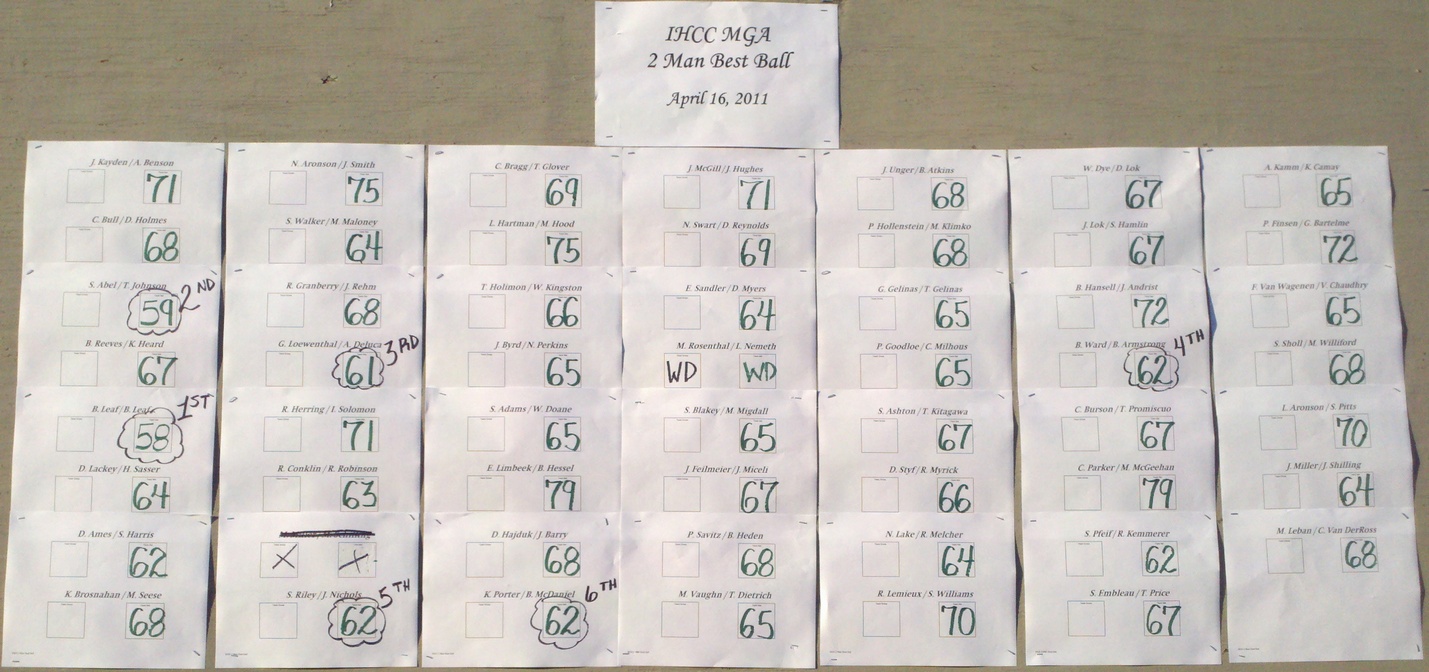 IHCC MGA
2 Man Best Ball
April 16, 2011
J. Kayden / A. Benson
71
C. Bull / D. Holmes
68
S. Abel / T. Johnson
59 2ND
B. Reeves / K. Heard
67
B. Leaf / B. Leaf
58 1ST
D. Lackey / H. Sasser
64
D. Ames / S. Harris
62
K. Brosnahan / M. Seese
68
N. Aronson / J. Smith
75
S. Walker / M. Maloney
64
R. Granberry / J. Rehm
68
G. Loewenthal / A. DeLuca
61 3RD
R. Herring / I. Solomon
71
R. Conklin / R. Robinson
63
X X
S. Riley / J. Nichols
62 5TH
C. Bragg / T. Glover
69
L. Hartman / M. Hood
75
T. Holimon / W. Kingston
66
J. Byrd / N. Perkins
65
S. Adams / W. Doane
65
E. Limbeek / B. Hessel
79
D. Hajduk / J. Barry
68
K. Porter / B. McDaniel
62 6TH
J. McGill / J. Hughes
71
N. Swart / D. Reynolds
69
E. Sandler / D. Myers
64
M. Rosenthal / L. Nemeth
WD WD
S. Blakey / M. Migdall
65
J. Feilmeier / J. Miceli
67
P. Savitz / B. Heden
68
M. Vaughn / T. Dietrich
65
J. Unger / B. Atkins
68
P. Hollenstein / M. Klimko
68
G. Gelinas / T. Gelinas
65
P. Goodloe / C. Milhous
65
S. Ashton / T. Kitagawa
67
D. Styf / R. Myrick
66
N. Lake / R. Melcher
64
R. Lemieux / S. Williams
70
W. Dye / D. Lok
67
J. Lok / S. Hamlin
67
B. Hansell / J. Andrist
72
B. Ward / B. Armstrong
62 4TH
C. Burson / T. Promiscuo
67
C. Parker / M. McGeehan
79
S. Pfeif / R. Kemmerer
62
S. Embleau / T. Price
67
A. Kamm / K. Camay
65
P. Finsen / G. Bartelme
72
F. Van Wagenen / V. Chaudhry
65
S. Sholl / M. Williford
68
L. Aronson / S. Pitts
70
J. Miller / J. Shilling
64
M. Leban / C. Van DerRoss
68